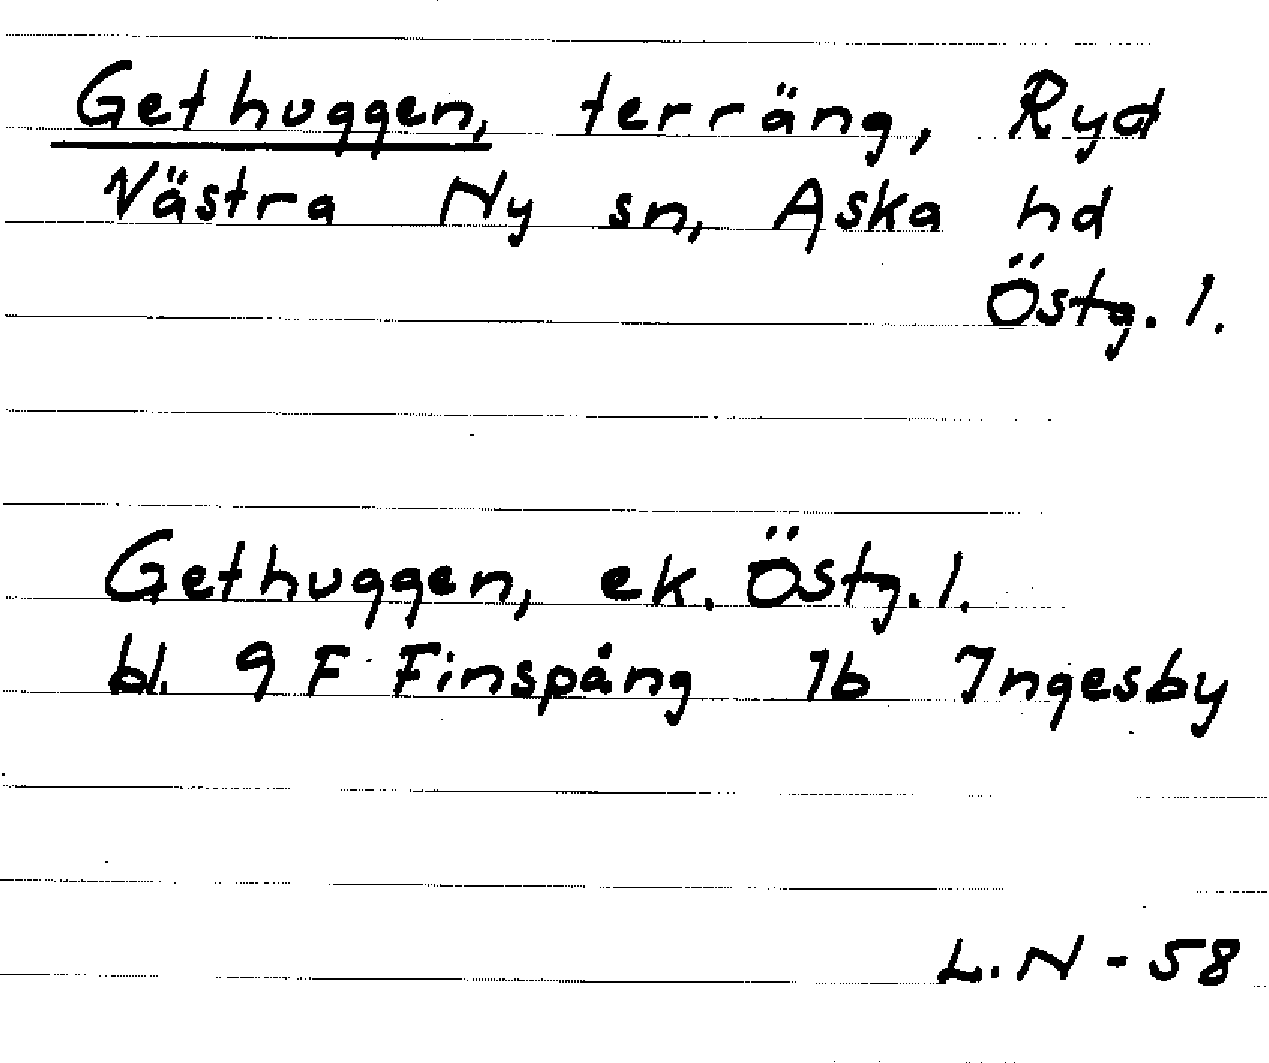 Gethuggen, terräng, Ryd
Västra Ny sn, Aska hd
Östg. l.
Gethuggen, ek. Östg. l.
bl. 9 F Finspång 1b Ingesby
L. N - 58